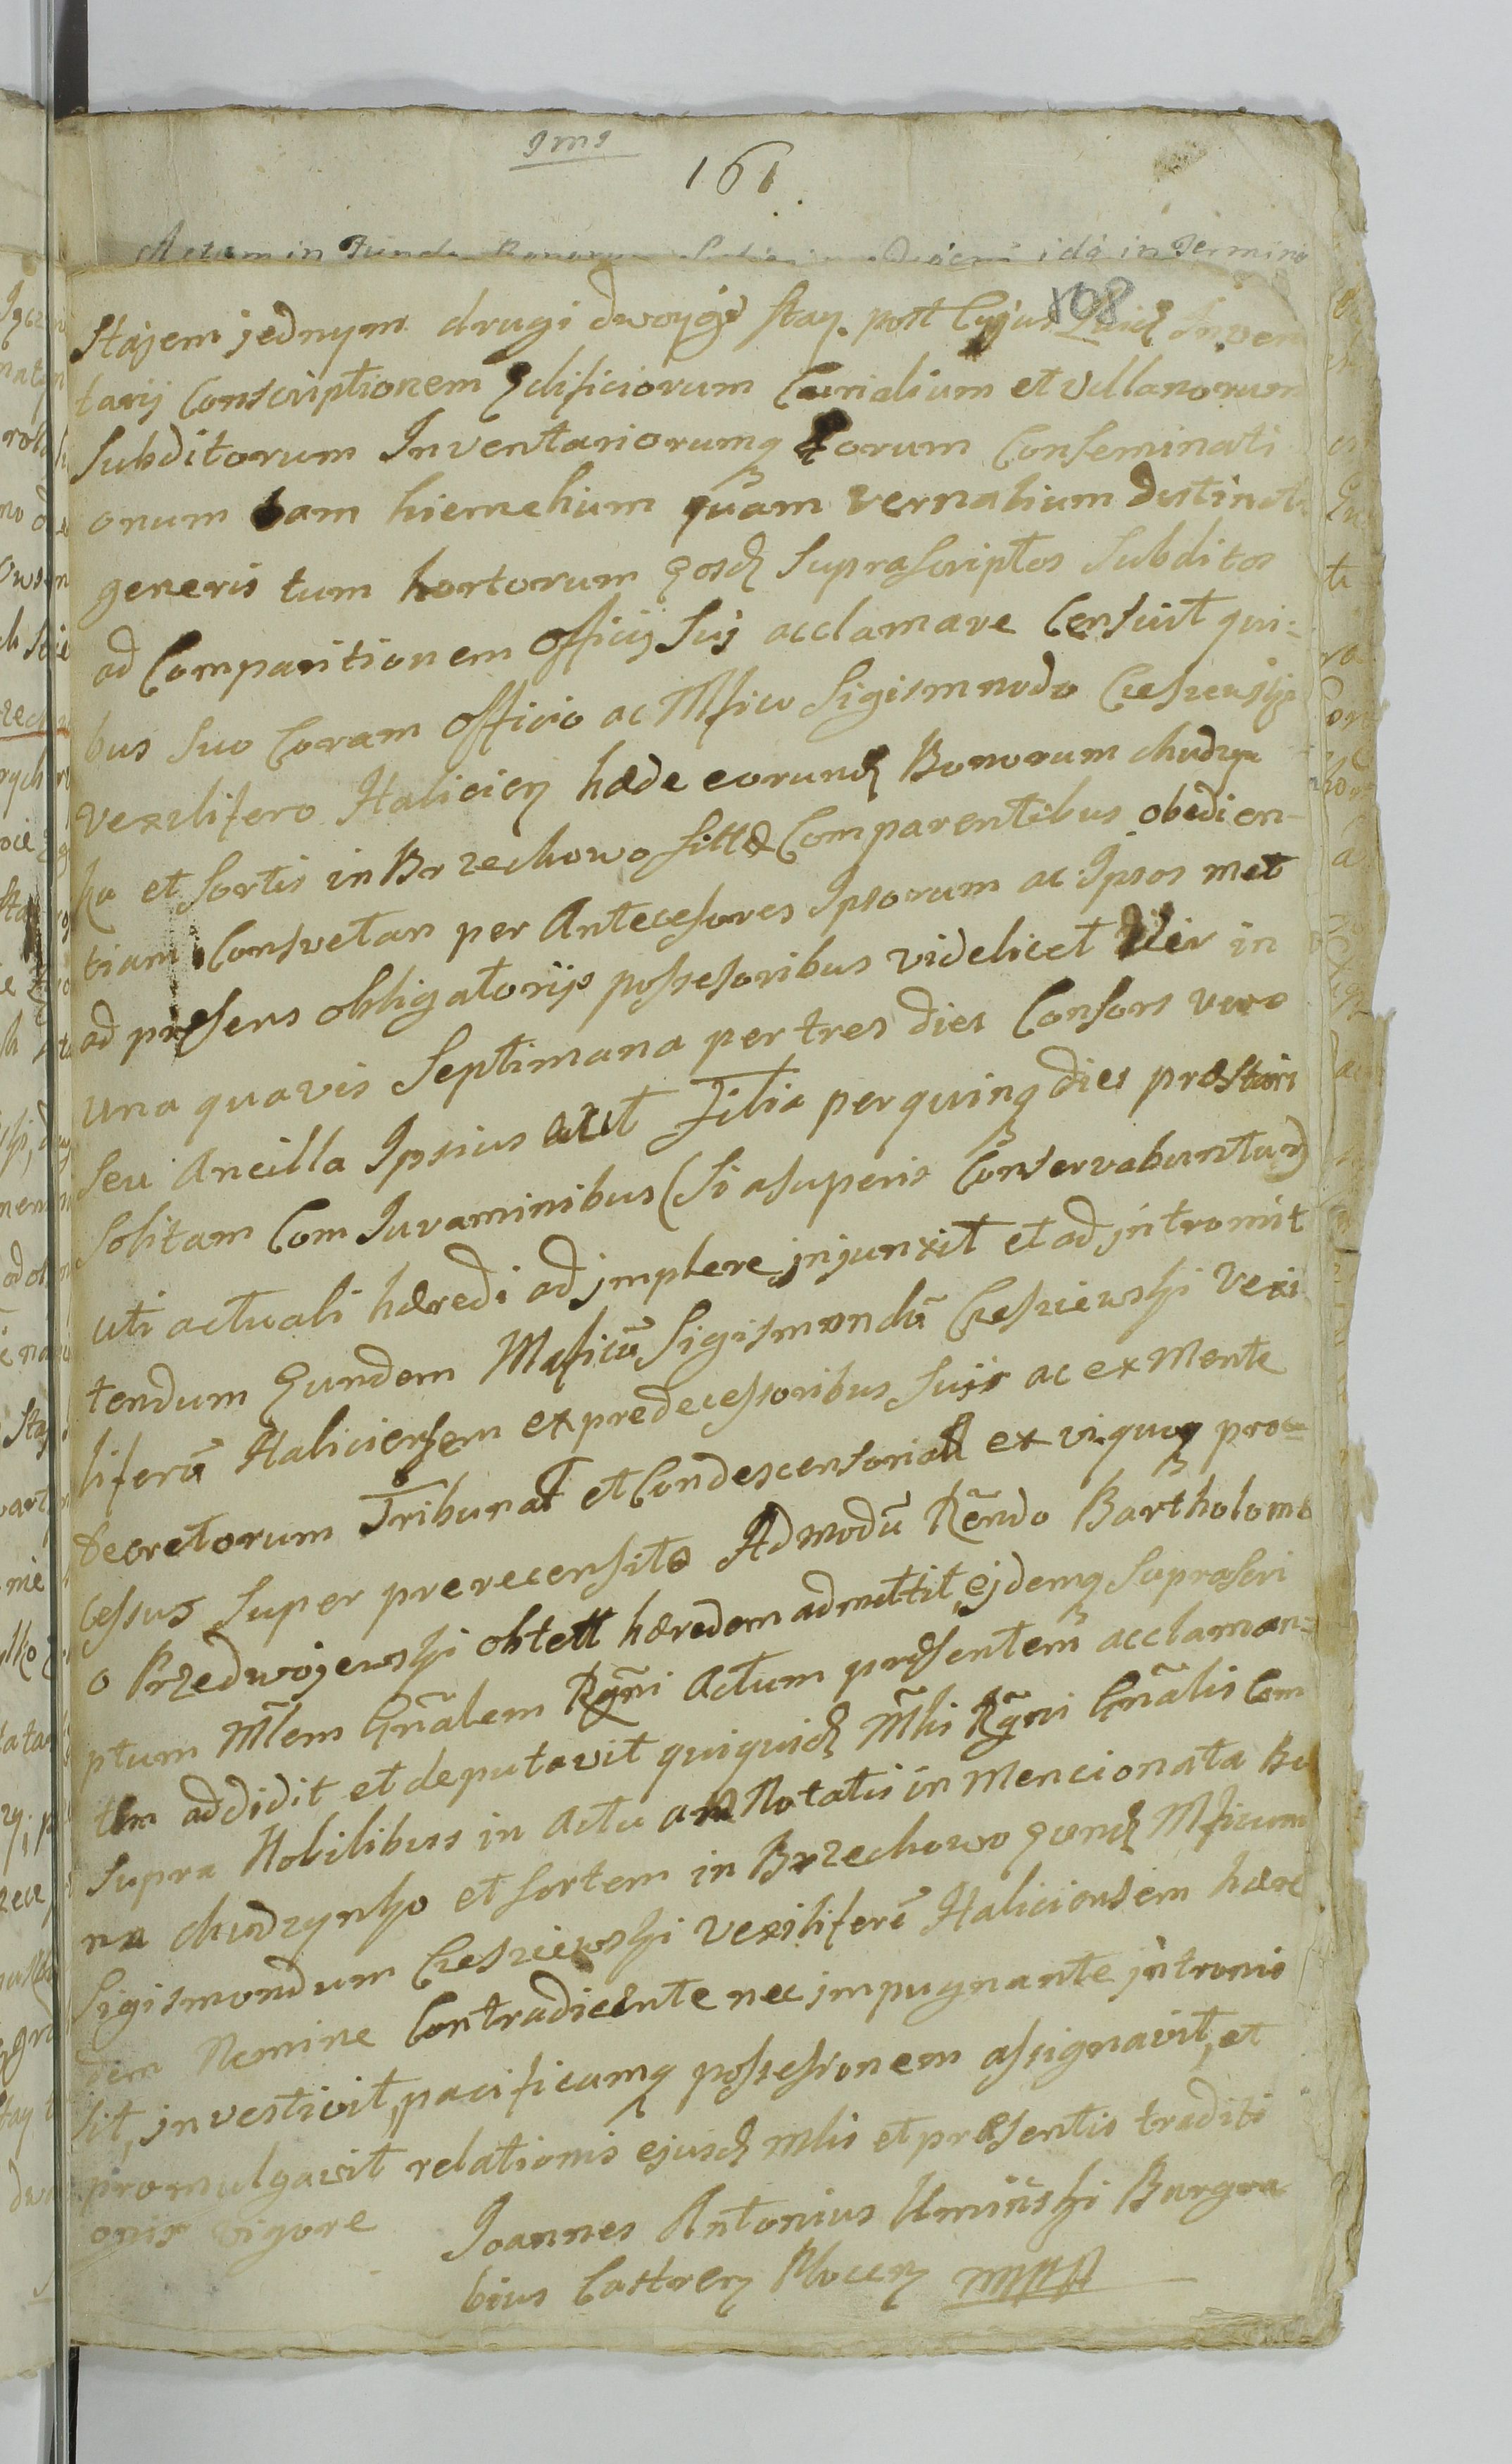 161
Actum in Fundo Bonorum in Termino
108
Stajem jednym drugi dwoyga stay. post Cujus quid Inven
tarij Conscriptionem Edificiorum Curialium et Villanorum
Subditorum Inventariorumq Eorum Conseminati
onum tam hiemelium quam vernalium distincti
generis tum hortorum Eosd Suprascriptos Subditos
ad Comparitionem Officij Sui acclamare Censuit qui-
bus Suo Coram Officio ac Mfico Sigismundo Cieszewski
Vexilifero Halicien hæde eorund Bonorum chudzyn
ko et Sortis in Brzechowo sitto Comparentibus obedien-
tiam Consvetan per Antecesores Ipsorum ac Ipsos met
ad presens obligatorijs possesoribus videlicet Vir in
una quavis Septimana per tres dies Consors vero
Seu Ancilla Ipsius aut Filia per quinq dies præstari
Solitam Com Juvaminibus (Si a superis Conservabuntur)
uti actuali hæredi adjmplere jnjunxit et ad jntromit
tendum Eundem Mgficū Sigismondū Cieszewski Vexi
liferū Haliciensem ex predecessoribus Suijs ac ex Mente
Decretorum Tribunal et Condescensorial ex vi quoq pro-
cessus Super prerecensito Admodū Rēndo Bartholome
o Przedwojewski obtett hæredem admittit, ejdemq Suprascri
ptum Mlem Gnālem Rgni Actum præsentem acclaman-
tem addidit et deputavit quiquid Mli Rgni Gnālis Com
Supra Nobilibus in Actu annotatis in Mencionata Bo
na chudzynko et Sortem in Brzechowo Eund Mficum
Sigismondum Cieszewski Vexiliferū Haliciensem hære
dem Nemine Contradicente nec jmpugnante jntromi
sit, jnvestivit, pacificamq possesionem assignavit, et
promulgavit relationis ejusd mlis et præsentis traditi
onis vigore
Joannes Antonius Umiński Burgra
bius Castren Plocen mpp